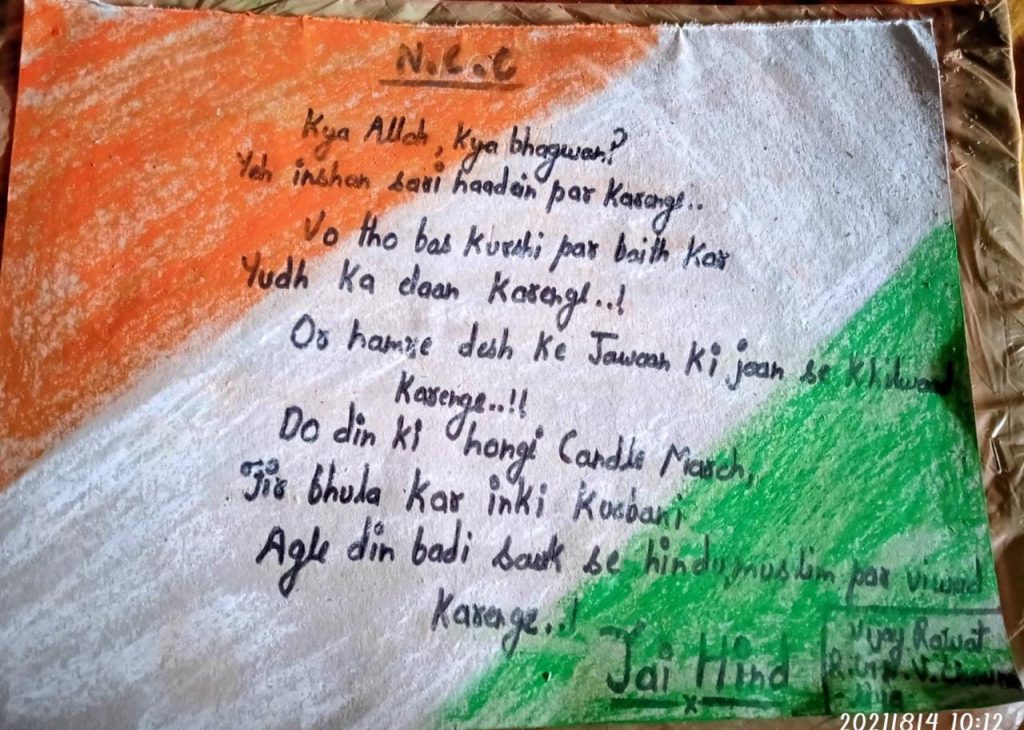 N.C.C
Kya Allah, Kya bhagwan?
Yeh inshan sari haadein par Karenge..
Vo tho bas Kurshi par baith Kar
Yudh Ka daan Karenge..!
Or hamre desh Ke Jawaan Ki jaan se Khilwad
Karenge..!!
Do din ki hongi Candle March,
Fir bhula Kar inki Kurbani
Agle din badi sauk se hindu,muslim par viwad
Karenge..!
Jai Hind
x
Vijay Rawat
2021/8/4 10:12